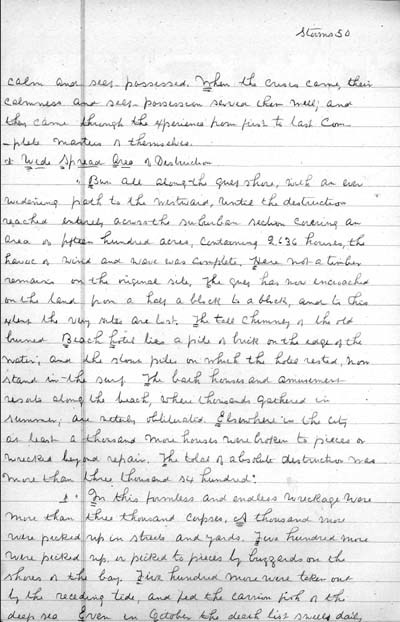 Storms 50
calm and self possessed. When the crisis came, their
calmness and self-possession served them well; and
they came through the experience from first to last Com-
-plete masters of themselves.
Wide Spread Area of Destruction
"But all along the gulf shore, with an ever
widening path to the westward, until the destruction
reached entirely across the suburban section covering an
area of fifteen hundred acres, containing 2636 houses, the
havoc of wind and wave was complete. Here not a timber
remains on the original site. The gulf has now encroached
on the land from a half a block to a block, and to this
extent the very sites are lost. The tall chimney of the old
burned Beach hotel lies a pile of brick on the edge of the
water; and the stone piles on which the hotel rested, now
stand in the surf. The bath houses and amusement
resorts along the beach, where thousands gathered in
summer, are utterly obliterated. Elsewhere in the city
at least a thousand more houses were broken to pieces or
wrecked beyond repair. The total of absolute destruction was
more than three thousand six hundred."
"In this formless and endless wreckage were
more than three thousand corpses. A thousand more
were picked up in streets and yards. Five hundred more
were picked up, or picked to pieces by buzzards on the
shores of the bay. Five hundred more were taken out
by the receding tide, and fed the carrion fish of the
deep sea. Even in October the death list swells daily